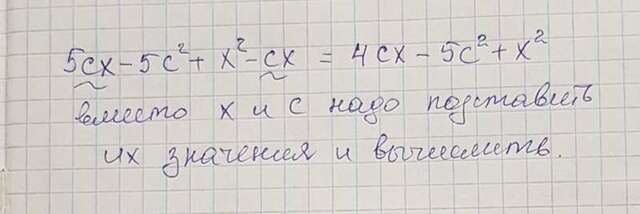 5cx - 5c² + x² - cx = 4cx - 5c² + x²
вместо x и c надо подставить
их значения и вычислить.